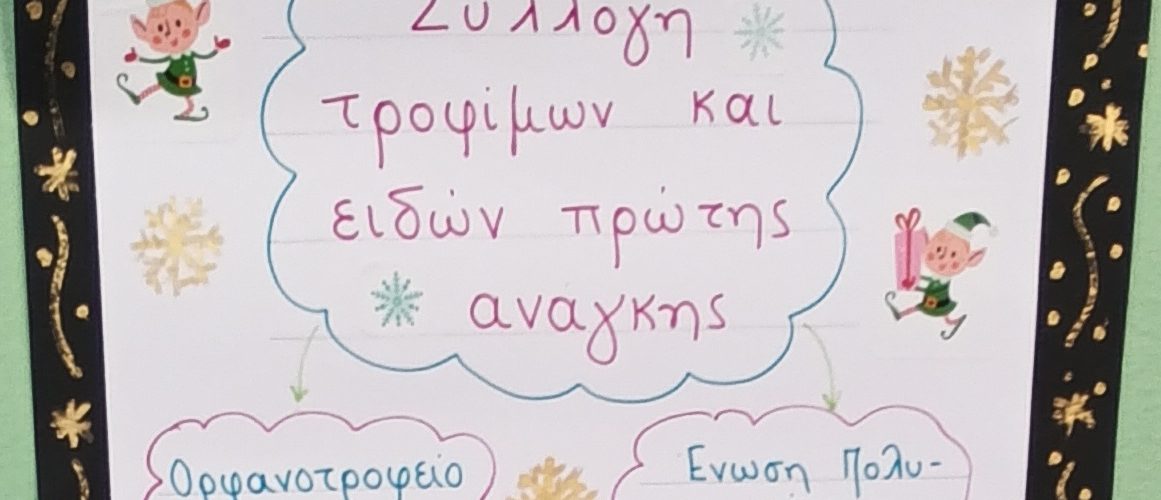 Συλλογη
τροφίμων και
ειδών πρώτης
αναγκης
Ορφανοτροφείο
Ενωση Πολυ-